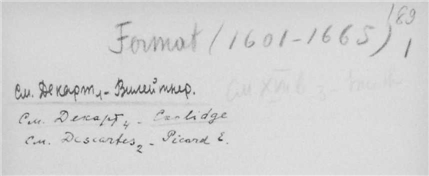 Fermat (1601-1665) 89
1
См. Декарт₁ - Вилейтнер.
См. Декарт₄ - Coolidge
См. Descartes₂ - Picard E.